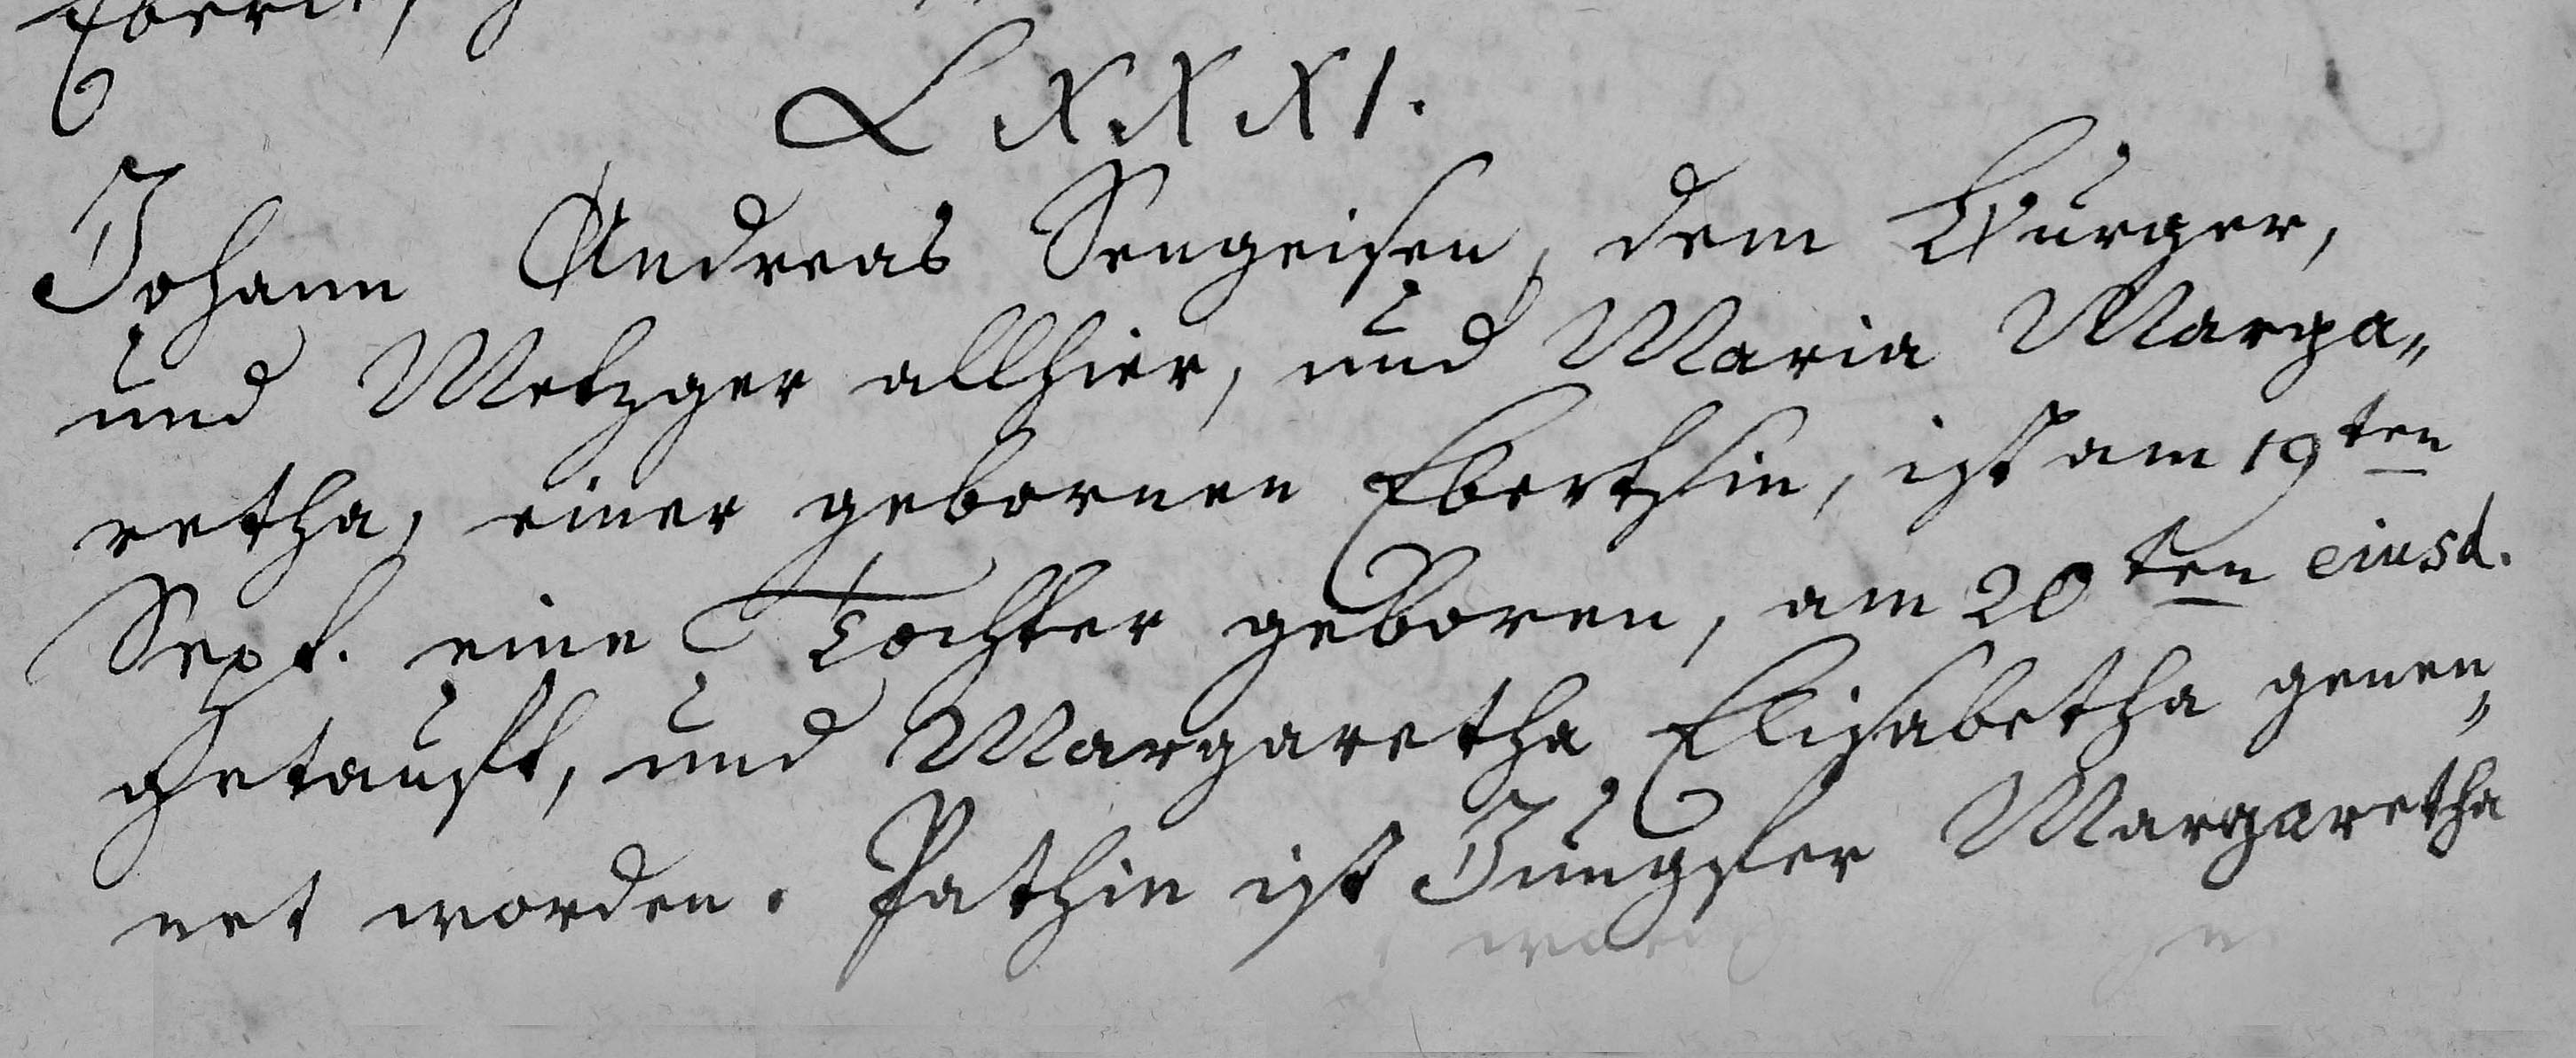 LXXXI.
Johann Andreas Sengeisen, dem Burger,
und Metzger allhier, und Maria Marga„
retha, einer gebornen Eberthin, ist am 19ten
Sept. eine Tochter geboren, am 20ten eiusd.
getauft, und Margaretha Elisabetha genen„
net worden. Pathin ist Jungfer Margaretha